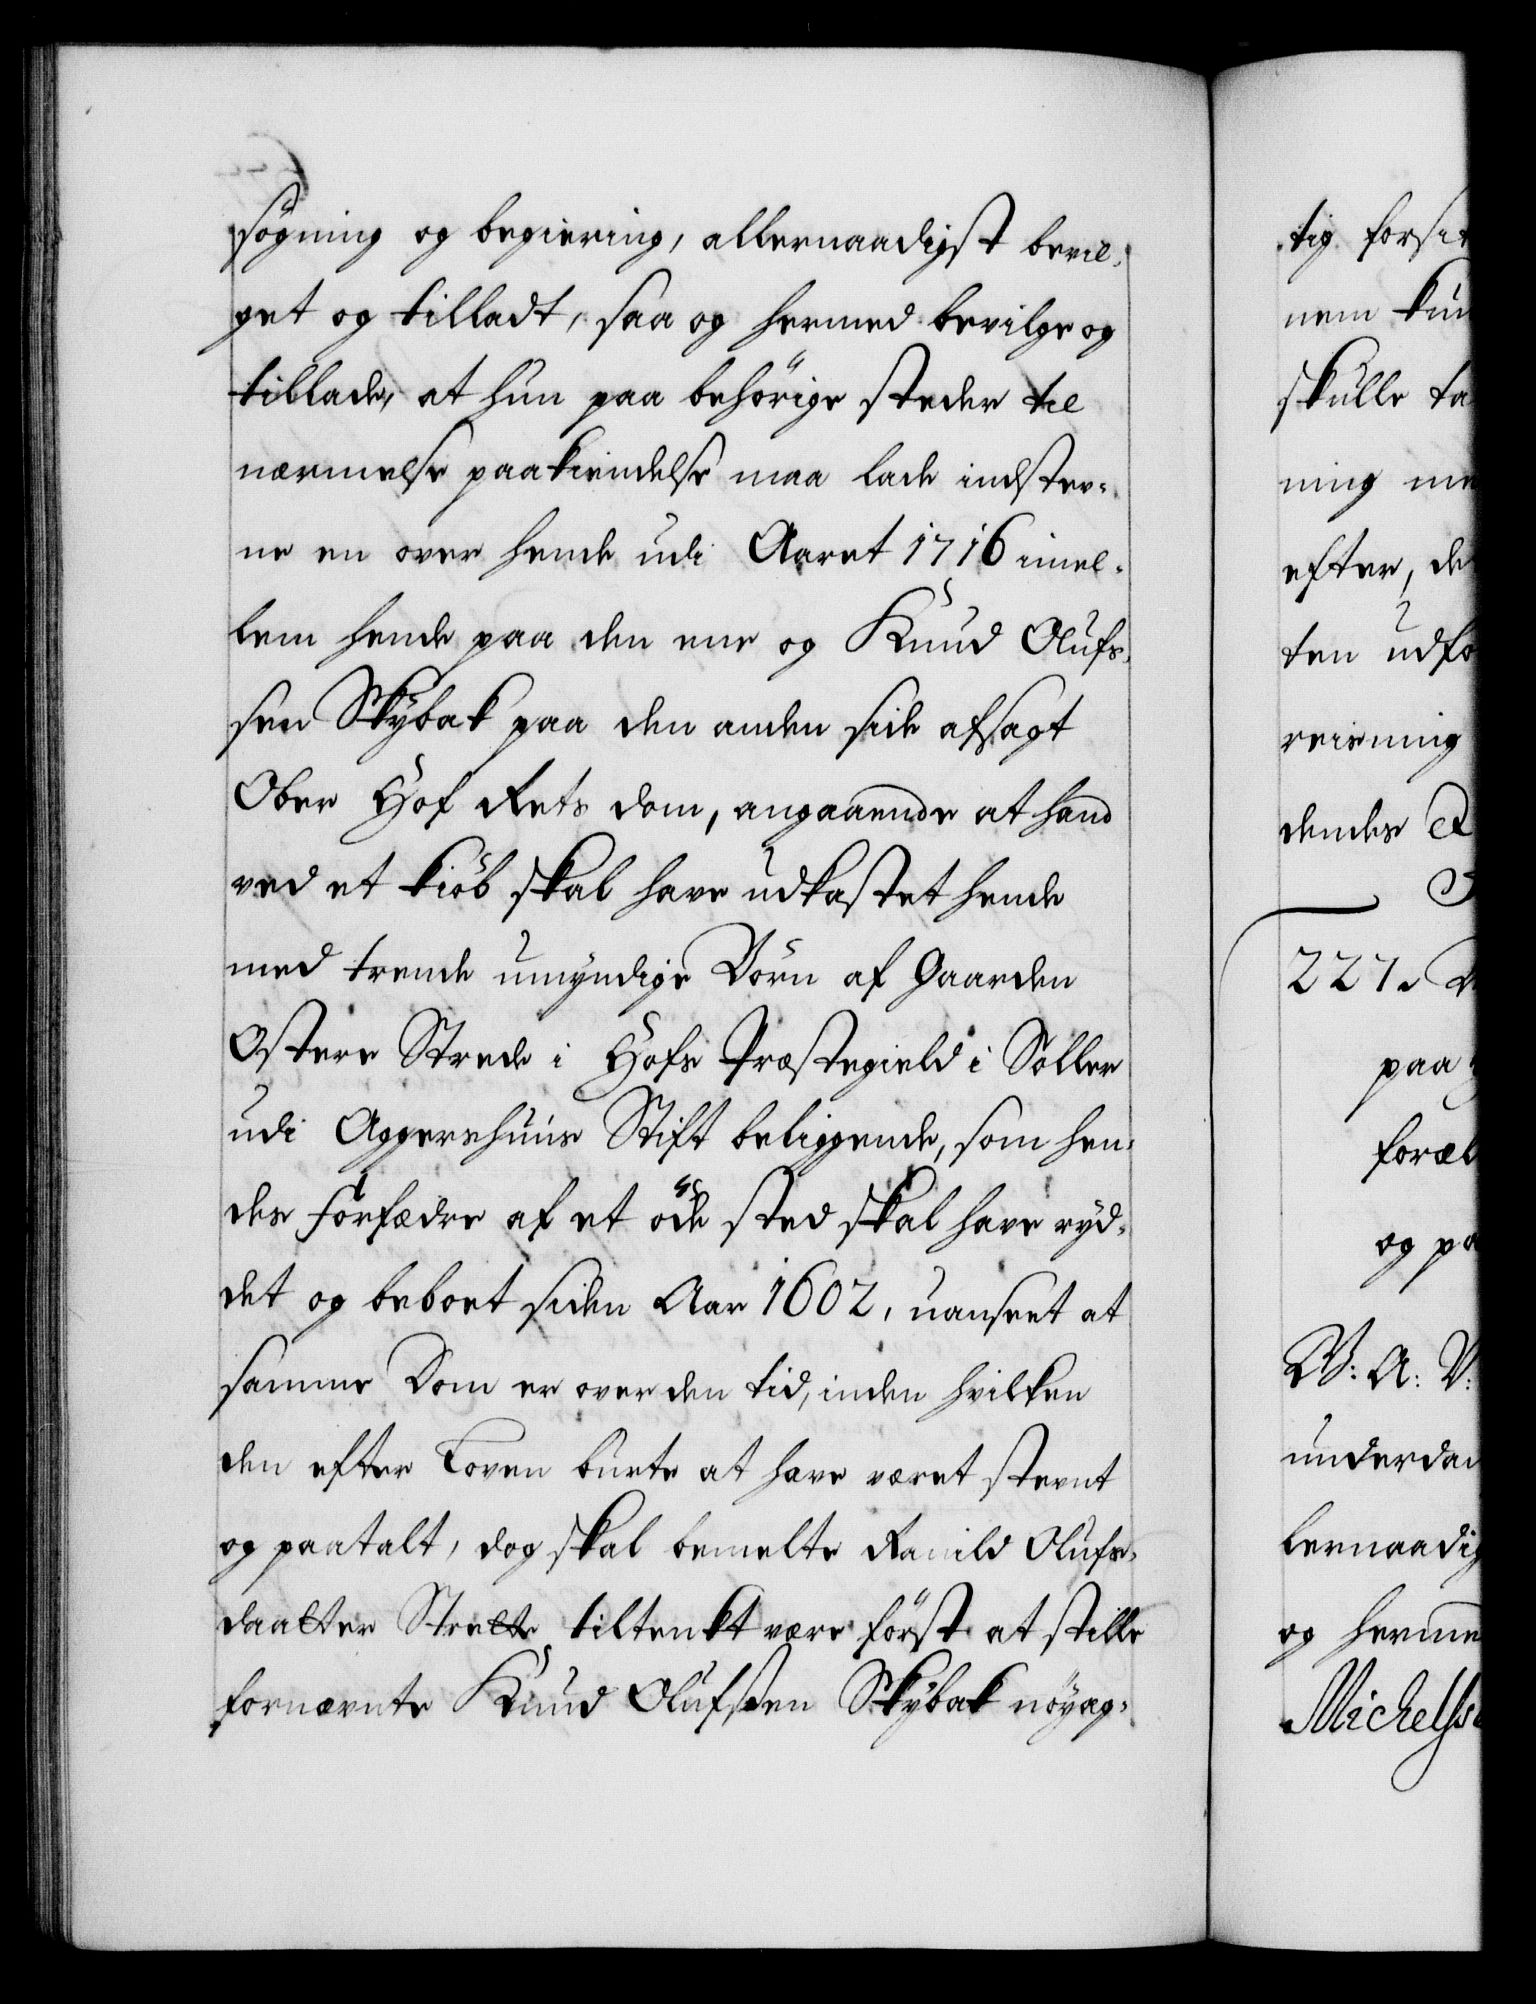 søgning og begiering, allernaadigst bevil-
get og tilladt, saa og hermed bevilge og
tillade, at hun paa behörige steder til
nærmelse paakiendelse maa lade indstev-
ne en over hende udi Aaret 1716 imel-
lem hende paa den ene og Knud Olufs-
sen Skÿbak paa den anden side afsagt
Ober Hof Rets dom, angaaende at hand
ved et kiöb skal have udkastet hende
med trende umyndige Börn af Gaarden
Ostere Strede i Hofs Præstegield i Soller
udi Aggershuus Stift beliggende, som hen-
des Forfædre af et öde sted skal have ryd-
det og beboet siden Aar 1602, uanseet at
samme Dom er over den tid, inden hvilken
den efter Loven burte at have været stevnt
og paatalt, dog skal bemelte Ranild Olufs-
daatter Strette tiltenkt være först at stille
fornævnte Knud Olufssen Skÿbak nöyag-
tig forsi
nem kun
skulle ta
ning me
efter, de
ten udfo
reisning
dendes
227.
paa
foræl
og pa
W: A: V:
underdan
lernaadig
og herme
Michelss